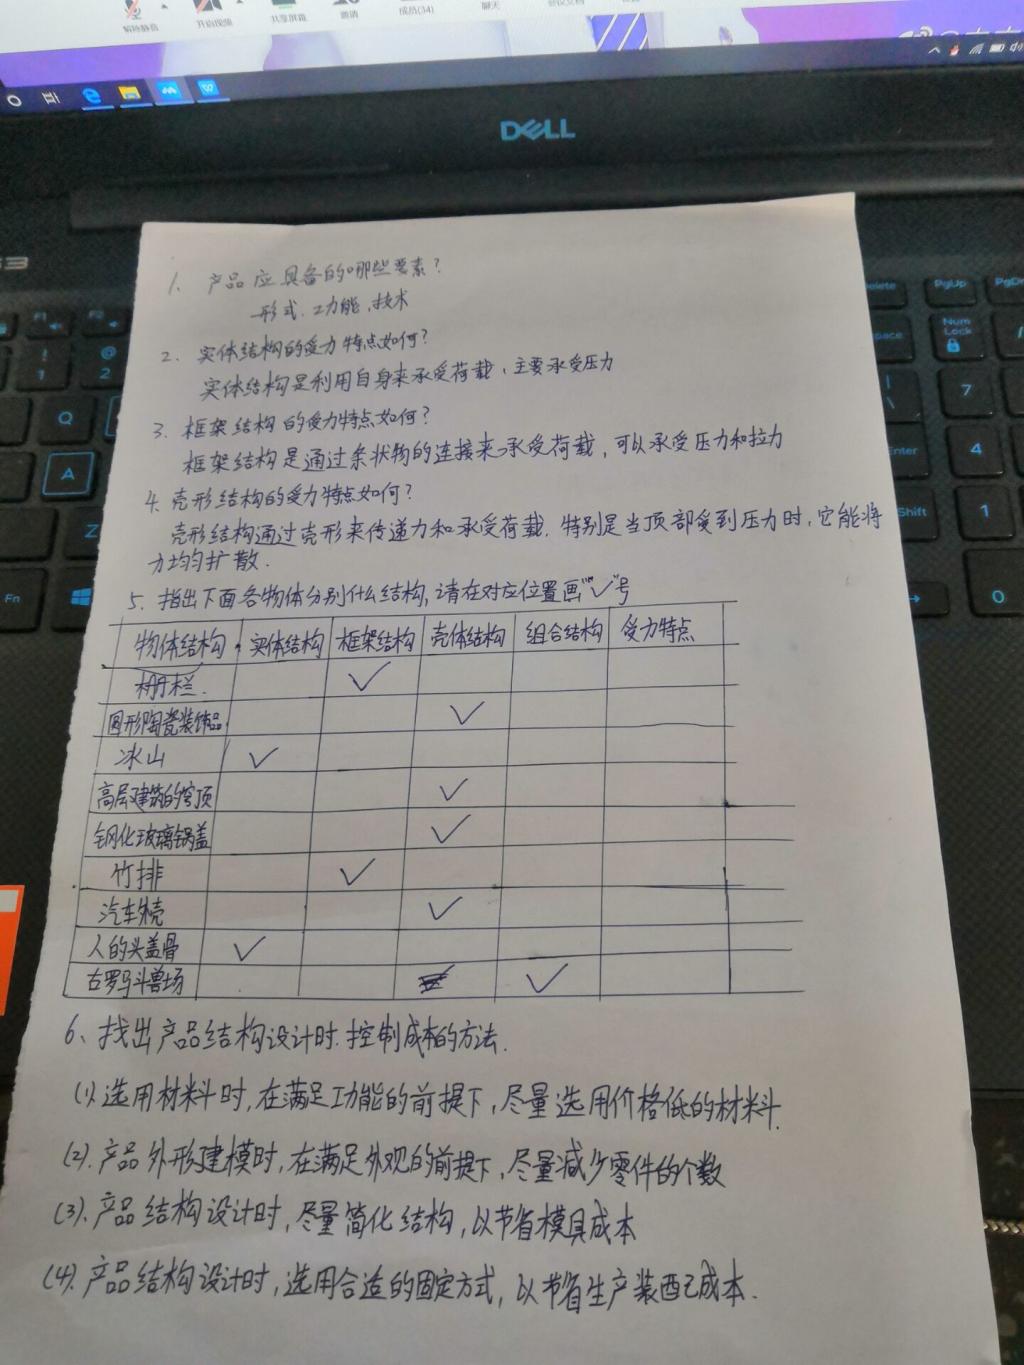 解除静音
开启视频
共享屏幕
邀请
成员(34)
聊天
DELL
1. 产品应具备的哪些要素?
形式、功能、技术
2. 实体结构的受力特点如何?
实体结构是利用自身来承受荷载,主要承受压力
3. 框架结构的受力特点如何?
框架结构是通过条状物的连接来承受荷载,可以承受压力和拉力
4. 壳形结构的受力特点如何?
壳形结构通过壳形来传递力和承受荷载.特别是当顶部受到压力时,它能将
力均匀扩散.
5. 指出下面各物体分别什么结构,请在对应位置画"✓"号
物体结构 实体结构 框架结构 壳体结构 组合结构 受力特点
栅栏. ✓
圆形陶瓷装饰品 ✓
冰山 ✓
高层建筑的穹顶 ✓
钢化玻璃锅盖 ✓
竹排 ✓
汽车外壳 ✓
人的头盖骨 ✓
古罗马斗兽场 ✓
6、找出产品结构设计时.控制成本的方法.
(1).选用材料时,在满足功能的前提下,尽量选用价格低的材料.
(2).产品外形建模时,在满足外观的前提下,尽量减少零件的个数
(3).产品结构设计时,尽量简化结构,以节省模具成本
(4).产品结构设计时,选用合适的固定方式,以节省生产装配成本.
F1
F2
!
1
@
2
Q
A
Z
Fn
Delete
PgUp
PgDn
Num
Lock
7
Enter
4
Shift
1
0